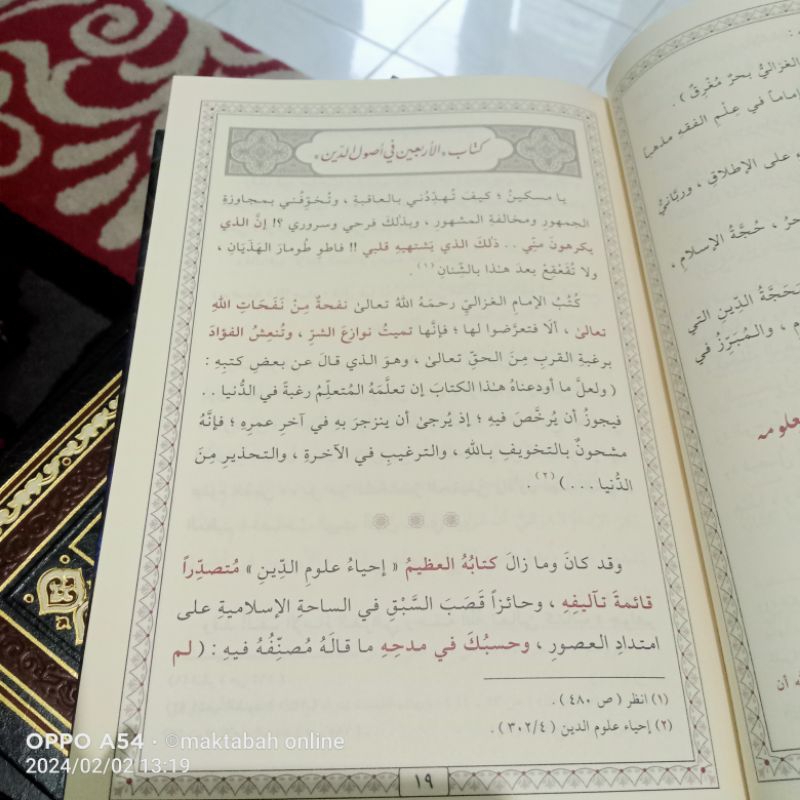 كتاب «الأربعين في أصول الدين»
يا مسكينُ ؛ كيفَ تُهدِّدُني بالعاقبةِ ، وتُخوِّفُني بمجاوزةِ
الجمهورِ ومخالفةِ المشهورِ ، وبذلكَ فرحي وسروري ؟! إنَّ الذي
يكرهونَ منِّي .. ذلكَ الذي يَشتهيهِ قلبي !! فاطوِ طُومارَ الهَذَيانِ ،
ولا تُقَعْقِعْ بعدَ هذا بالشِّنانِ (١) .
كُتُبُ الإمامِ الغزاليِّ رحمَهُ اللهُ تعالىٰ نفحةٌ مِنْ نَفَحَاتِ اللهِ
تعالىٰ ، ألَا فتعرَّضوا لها ؛ فإنَّها تميتُ نوازعَ الشرِّ ، وتُنعِشُ الفؤادَ
برغبةِ القربِ مِنَ الحقِّ تعالىٰ ، وهوَ الذي قالَ عن بعضِ كتبِهِ :
( ولعلَّ ما أودعناهُ هذا الكتابَ إن تعلَّمَهُ المُتعلِّمُ رغبةً في الدُّنيا ..
فيجوزُ أن يُرخَّصَ فيهِ ؛ إذ يُرجىٰ أن ينزجرَ بهِ في آخرِ عمرِهِ ؛ فإنَّهُ
مشحونٌ بالتخويفِ باللهِ ، والترغيبِ في الآخرةِ ، والتحذيرِ مِنَ
الدُّنيا ... ) (٢) .
وقد كانَ وما زالَ كتابُهُ العظيمُ « إحياءُ علومِ الدِّينِ » مُتصدِّراً
قائمةَ تآليفِهِ ، وحائزاً قَصَبَ السَّبْقِ في الساحةِ الإسلاميةِ على
امتدادِ العصورِ ، وحسبُكَ في مدحِهِ ما قالَهُ مُصنِّفُهُ فيهِ : ( لم
(١) انظر ( ص ٤٨٠ ) .
(٢) إحياء علوم الدين ( ٣٠٢/٤ ) .
١٩
الغزاليُّ بحرٌ مُغْرِقٌ ) .
إماماً في عِلْمِ الفقهِ مذهباً
على الإطلاقِ ، وربَّانيُّ
حُجَّةُ الإسلامِ ،
الدِّينِ التي
والمُبَرِّزُ في
علومه
OPPO A54 · ©maktabah online
2024/02/02 13:19